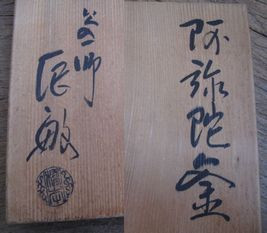 阿弥陀釜
釜師
辰敏